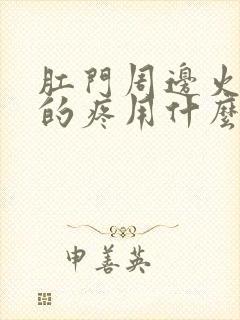 肛門周邊火
的疼用什麼
申善英